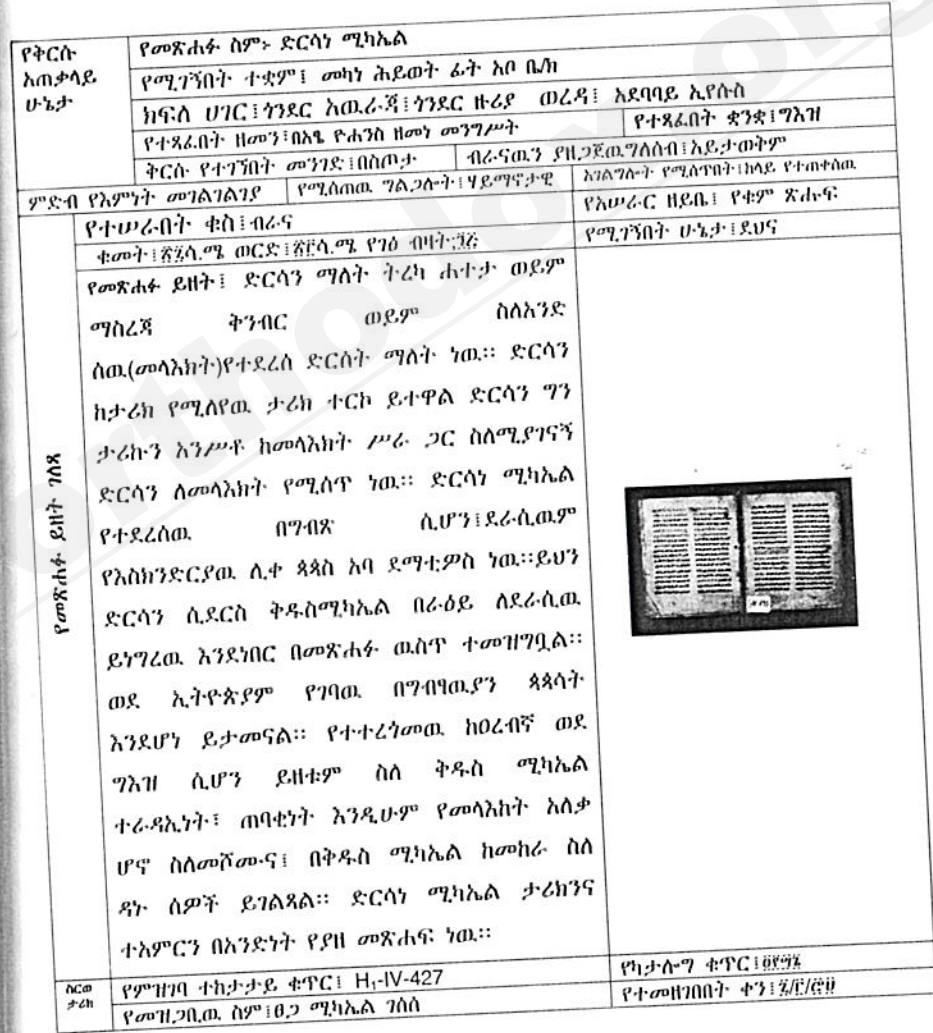 የቅርሱ አጠቃላይ ሁኔታ
የመጽሐፉ ስም፦ ድርሳነ ሚካኤል
የሚገኝበት ተቋም፤ መካነ ሕይወት ፊት አቦ ቤ/ክ
ክፍለ ሀገር፤ጎንደር አዉራጃ፤ጎንደር ዙሪያ ወረዳ፤ አደባባይ ኢየሱስ
የተጻፈበት ዘመን፤በአፄ ዮሐንስ ዘመነ መንግሥት
የተጻፈበት ቋንቋ፤ግእዝ
ቅርሱ የተገኘበት መንገድ፤በስጦታ
ብራናዉን ያዘጋጀዉግለሰብ፤አይታወቅም
ምድብ የእምነት መገልገልገያ
የሚሰጠዉ ግልጋሎት፤ሃይማኖታዊ
አገልግሎት የሚሰጥበት፤ከላይ የተጠቀሰዉ
የመጽሐፉ ይዘት ገለጻ
የተሠራበት ቁስ፤ብራና
የአሠራር ዘይቤ፤ የቁም ጽሑፍ
ቁመት፤ ወርድ፤ የገፅ ብዛት፤
የሚገኝበት ሁኔታ፤ደህና
የመጽሐፉ ይዘት፤ ድርሳን ማለት ትረካ ሐተታ ወይም
ማስረጃ ቅንብር ወይም ስለአንድ
ሰዉ(መላእክት)የተደረሰ ድርሰት ማለት ነዉ። ድርሳን
ከታሪክ የሚለየዉ ታሪክ ተርኮ ይተዋል ድርሳን ግን
ታሪኩን አንሥቶ ከመላእክት ሥራ ጋር ስለሚያገናኝ
ድርሳን ለመላእክት የሚሰጥ ነዉ። ድርሳነ ሚካኤል
የተደረሰዉ በግብጽ ሲሆን፤ደራሲዉም
የእስክንድርያዉ ሊቀ ጳጳስ አባ ደማቴዎስ ነዉ።ይህን
ድርሳን ሲደርስ ቅዱስሚካኤል በራዕይ ለደራሲዉ
ይነግረዉ እንደነበር በመጽሐፉ ዉስጥ ተመዝግቧል።
ወደ ኢትዮጵያም የገባዉ በግብፃዉያን ጳጳሳት
እንደሆነ ይታመናል። የተተረጎመዉ ከዐረብኛ ወደ
ግእዝ ሲሆን ይዘቱም ስለ ቅዱስ ሚካኤል
ተራዳኢነት፤ ጠባቂነት እንዲሁም የመላእከት አለቃ
ሆኖ ስለመሾሙና፤ በቅዱስ ሚካኤል ከመከራ ስለ
ዳኑ ሰዎች ይገልጻል። ድርሳነ ሚካኤል ታሪክንና
ተአምርን በአንድነት የያዘ መጽሐፍ ነዉ።
ስርወ ታሪክ
የምዝገባ ተከታታይ ቁጥር፤ H₁-IV-427
የካታሎግ ቁጥር፤
የመዝጋቢዉ ስም፤ፀጋ ሚካኤል ገሰሰ
የተመዘገበበት ቀን፤